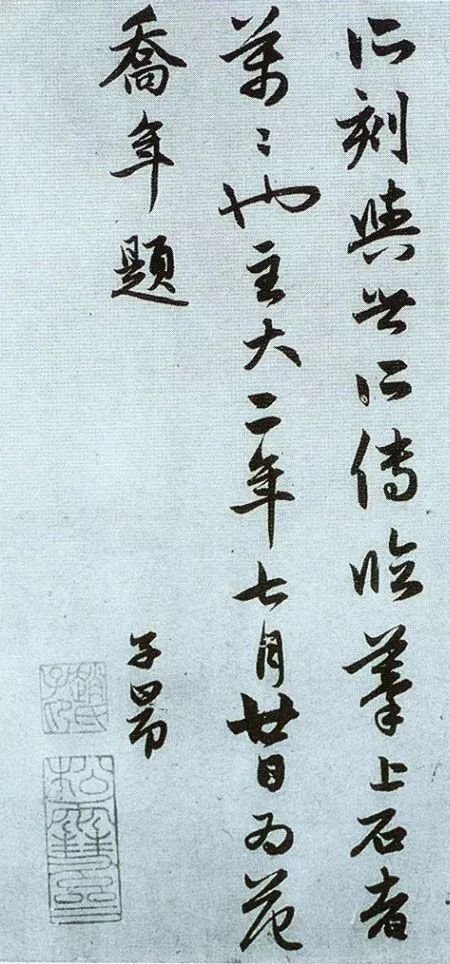 所刻與世所傳臨摹上石者
萬〻也至大二年七月廿日為范
喬年題
子昂
趙氏子昂
松雪齋